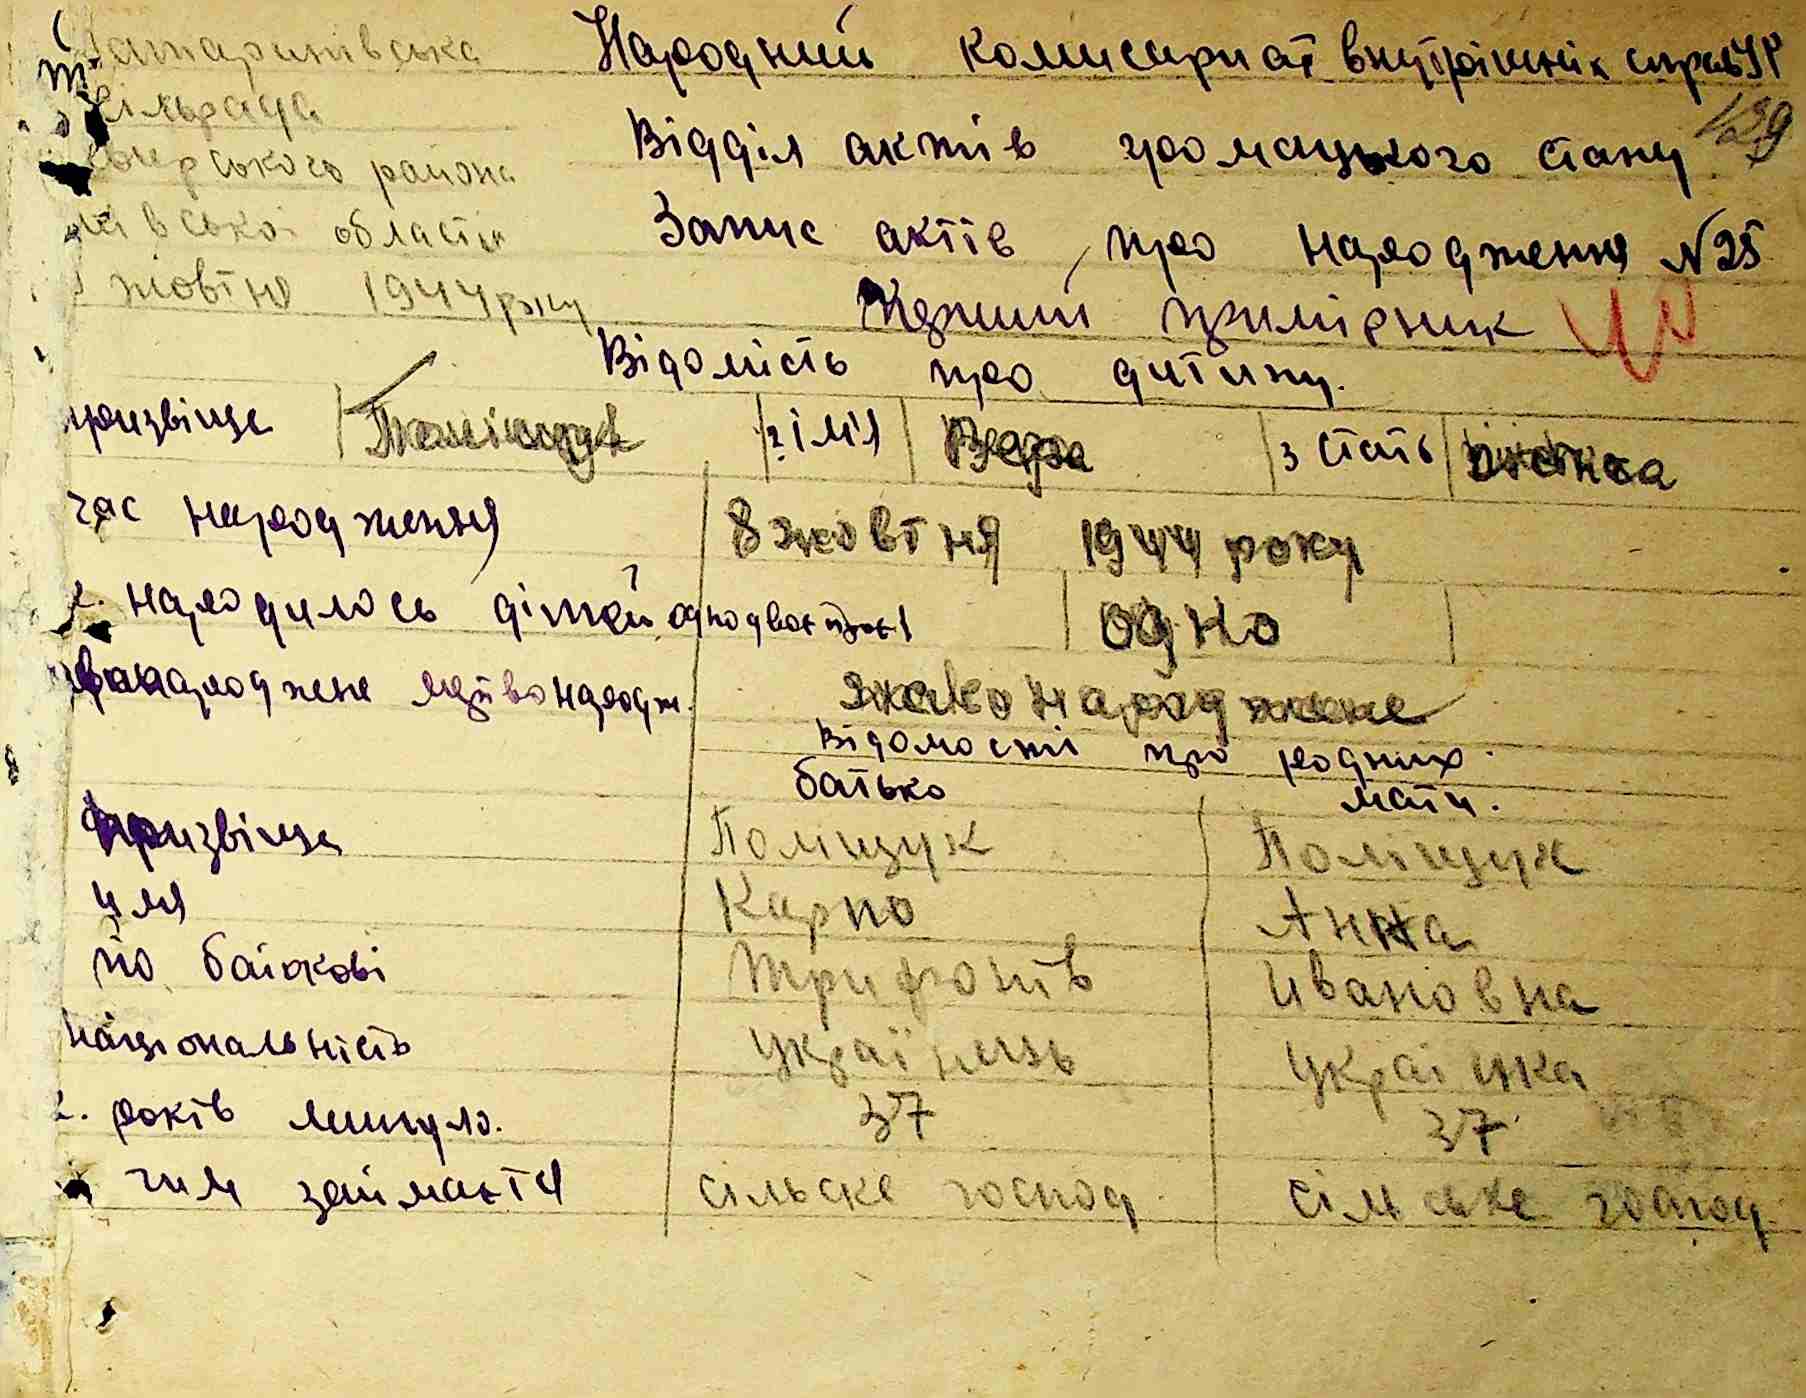 Татаринівська
сільрада
району
області
жовтня 1944 року
Народний комисариат внутрішніх справ УР
139
Відділ актів громацького стану
Запис актів про народження №25
Перший примірник
Відомість про дитину.
призвіще Поліщук 2 імія Вера 3 стать жінка
час народження 8 жовтня 1944 року
народилось дітей одно двое троє одно
живонароджене мертвонародж. живонароджене
Відомості про родних.
батько мати.
призвіще Поліщук Поліщук
имя Карпо Анна
по батькові Трифонів Ивановна
національність Українець Українка
років минуло. 37 37
чим займаєтся сільске господ. сільске господ.